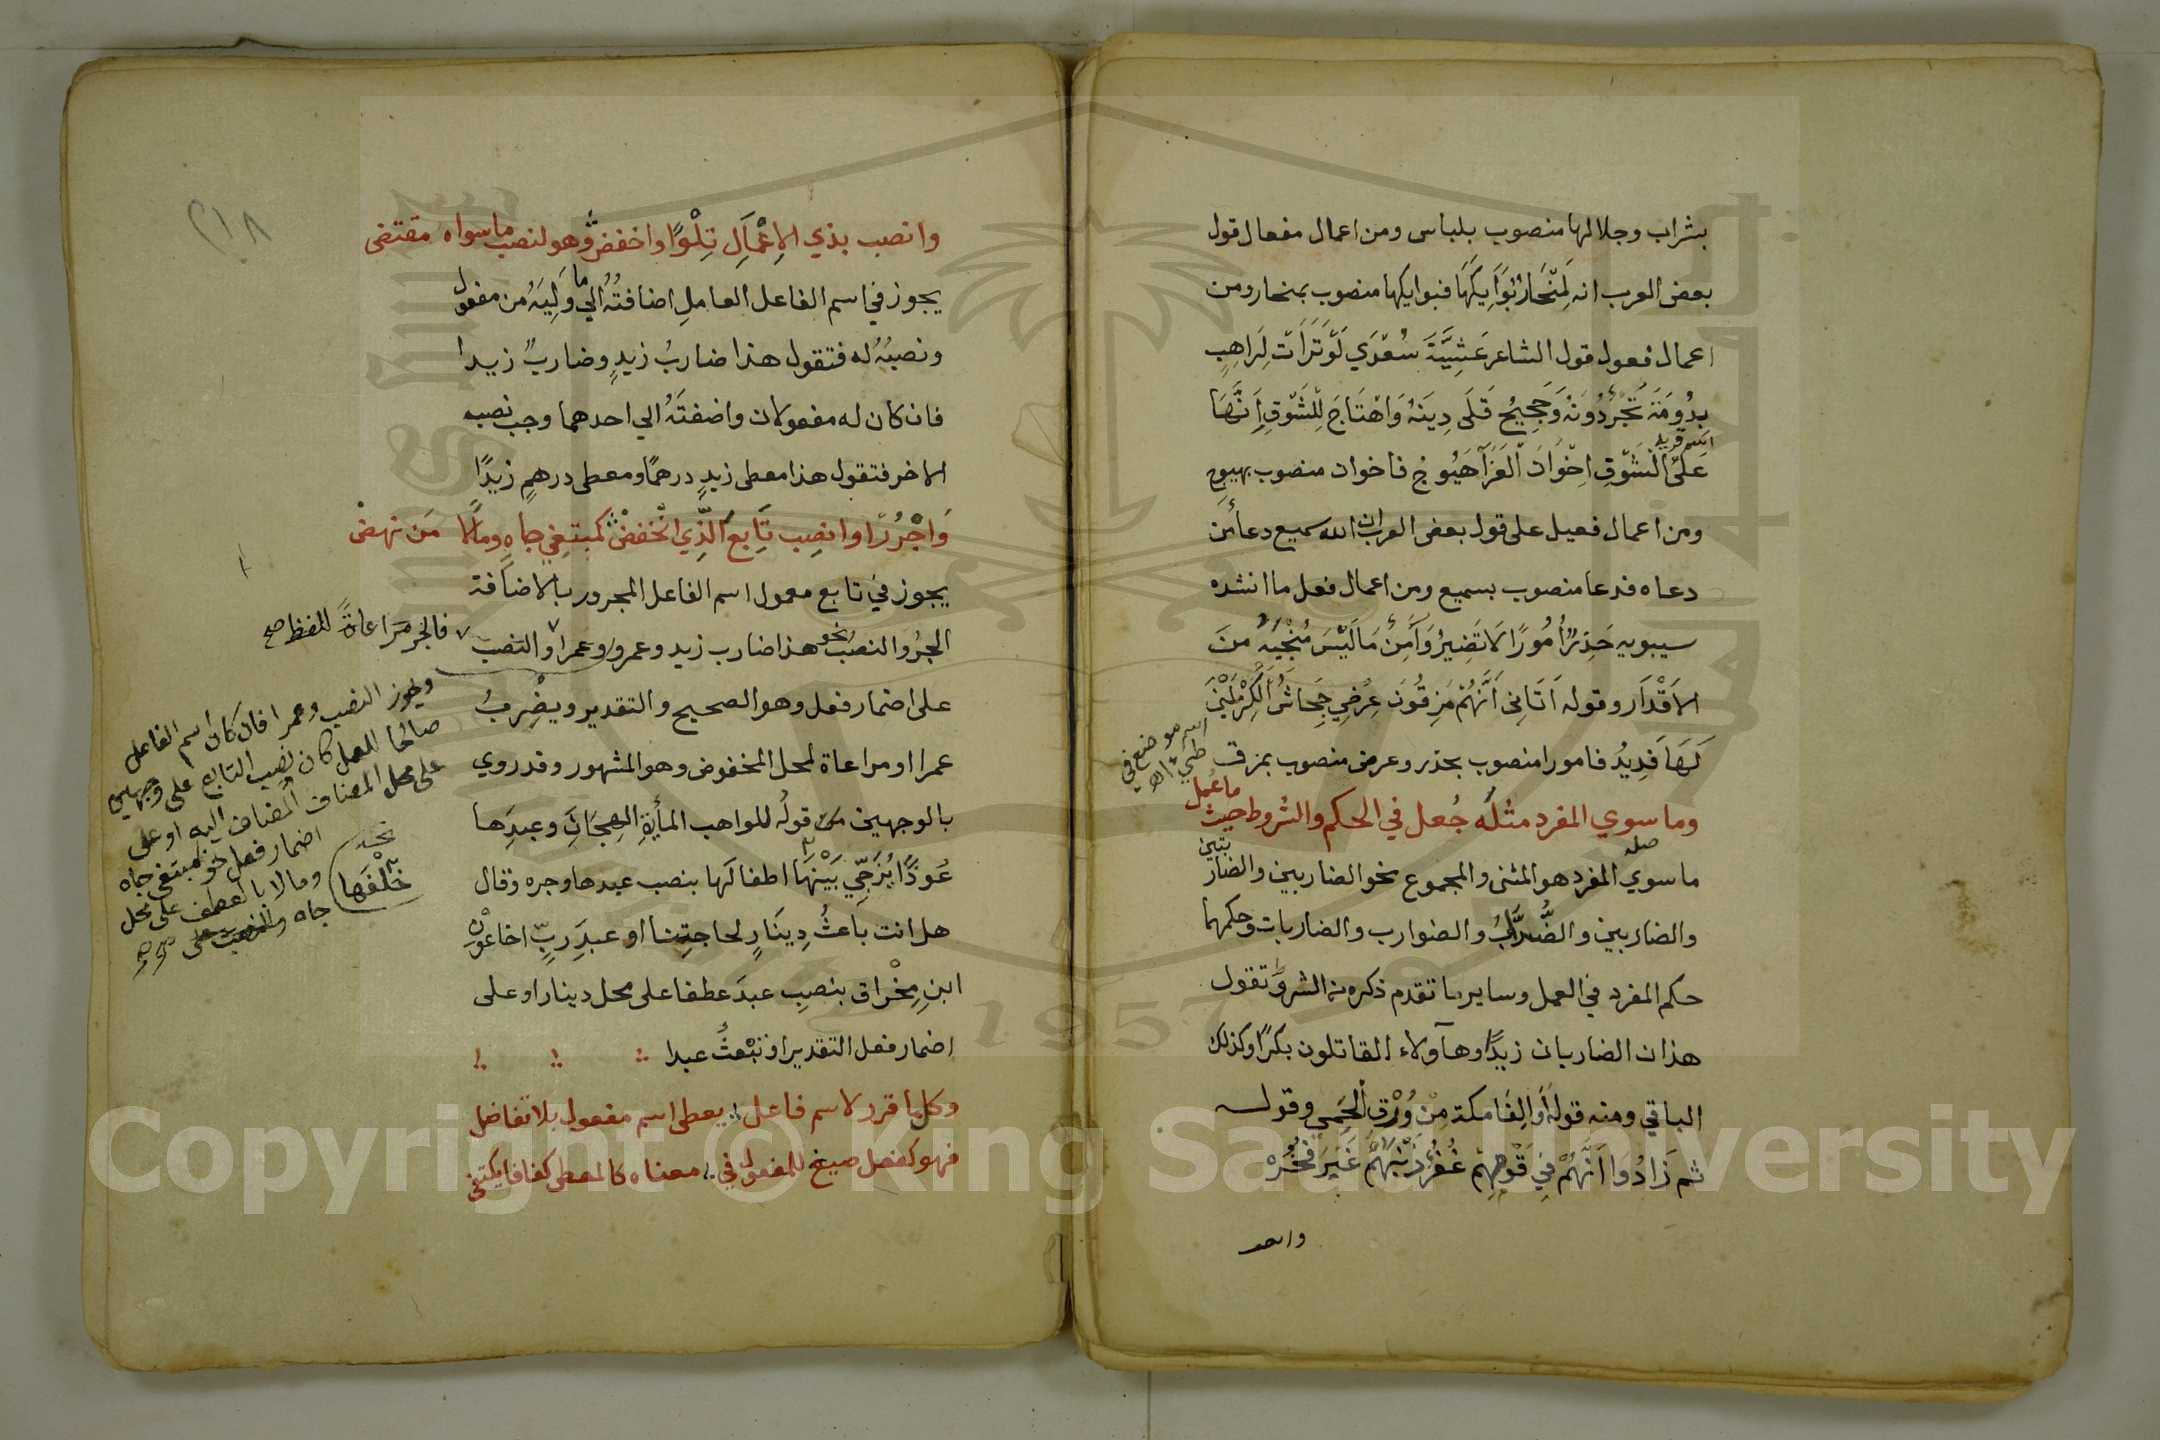 بشراب وجلالها منصوب بلباس ومن اعمال مفعال قول
بعض العرب انه لَمِنْحَارٌ بَوَايِكَهَا فبوايكها منصوب بمنحار ومن
اعمال فعول قول الشاعر عَشِيَّةَ سُعْدَي لَوْ تَرَاَتْ لِرَاهِبٍ
بِدُومَةَ تَجْرٌ دُونَهُ وَحَجِيجُ قَلَى دِينَهُ وَاهْتَاجَ لِلشَّوْقِ إِنَّهَا
اسم قرية
عَلَى الْشَّوْقِ اِخْوَانَ الْعَزَآ هَيُوجُ فاخوان منصوب بهيوج
ومن اعمال فعيل على قول بعض العرب ان الله سميع دعأ مَن
دعاه فدعا منصوب بسميع ومن اعمال فعل ما انشده
سيبويه حَذِرٌ اُمُورًا لَا تَضِيرُ وَآَمِنٌ مَا لَيْسَ مُنْجِيَهُ مِنَ
الاَقْدَار وقوله اَتَانِى اَنَّهُمْ مَزِقُونَ عِرْضِي جِحَاشُ الْكِرْمَلَيْنِ
لَهَا فَدِيدُ فامورا منصوب بحذر وعرض منصوب بمزق
اسم موضع في
طي اه
وما سوي المفرد مثلَه جُعل في الحكم والشروط حيث ما عُمل
ما سوي المفرد هو المثنى والمجموع نحو الضاربين والضاربتين
والضاربين والضُّرَّابُ والضوارب والضاربات وحكمهما
حكم المفرد في العمل وساير ما تقدم ذكره من الشروط تقول
هذان الضاربان زيدًا وهآولاء القاتلون بكرًا وكذلك
الباقي ومنه قولهُ أَوَالِفًا مكة مِنْ وُرْقِ الْحَمِي وقوله
ثم زَادُوا اَنَّهُمْ فِي قَوْمِهِمْ غُفُرٌ ذَنْبَهُمُ غَيْرَ فُخُرْه
وانصب
٢١٨
وانصب بذي الاِعْمَالِ تِلْوًا واخفض وهو لنصب ما سواه مقتضى
يجوز في اسم الفاعل العامل اضافتُهُ الي ما وَلِيَهُ من مفعول
ونصبُهُ له فتقول هذا ضاربُ زيدٍ وضاربٌ زيدا
فان كان له مفعولان واضفتَهُ الي احدهما وجب نصبه
الاخر فتقول هذا معطى زيدٍ درهمًا ومعطى درهمٍ زيدًا
وَاجْرُرْ اوانصِب تَابِعَ الَّذِي انْخَفَضْ كمبتغي جاهٍ ومالًا مَن نهض
يجوز في تابع معمول اسم الفاعل المجرور بالاضافة
الجرُ والنصبُ نحو هذا ضارب زيد وعمرو وعمرا والنصب
فالجر مراعاةً للفظ صح
على اضمار فعل وهو الصحيح والتقدير ويضْرِبُ
عمرا او مراعاة لمحل المخفوض وهو المشهور وقد روي
بالوجهين مَن قولُه للواهب المأيةِ الهِجَانِ وعبدِها
عُوذًا يُزَجِّي بَيْنَهَا اطفالَها بنصب عبدها وجره وقال
هل انت باعثُ دِينَارٍ لحاجتِنا او عبدَ ربِّ اخا عونِ
ابنِ مِخْرَاقِ بنصب عبدَ عطفا على محل دينار او على
اضمار فعل التقدير او تَبْعثُ عبدا
وكل ما قرر لاسم فاعل يعطى اسم مفعول بلا تفاضل
فهو كفعل صيغ للمفعول في معناه كالمعطى كفافا يكتفي
ويجوز النصب وعمرا فان كان اسم الفاعل
صالحا للعمل كان نصب التابع على وجهين
على محل المضاف المضاف اليه او على
اضمار فعل نحو كمبتغي جاه
ومالا بالعطف على محل
جاه والنصب على
نخـ
خَلْفَها